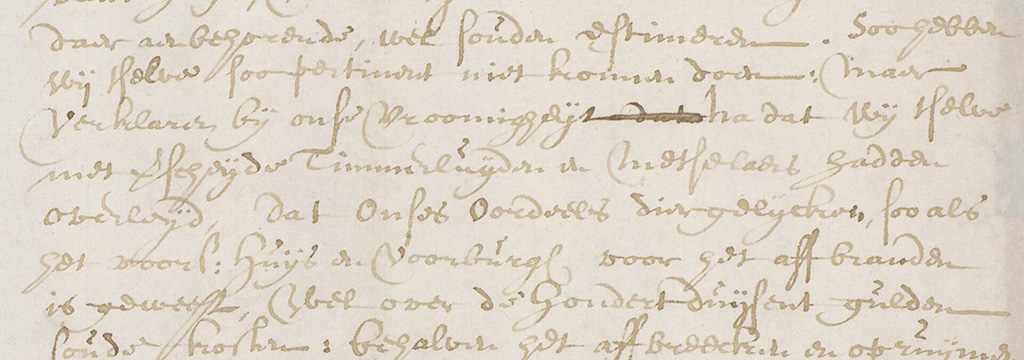 daer aenbehorende, wel souden estimeren. Soo hebben
wij tselve soo pertinent niet konnen doen; Maer
Verklaren bij onse Vroomigheijt dat na dat wij tselve
met %scheijde Timmerluijden en Metselaers hadden
overleijd, dat Onses Oordeels diergelijcken, soo als
het voors: Huijs en Voorburgh voor het aff branden
is geweest, Wel over de Hondert duijsent gulden
soude kosten: behalven het affbreecken en opruijmen